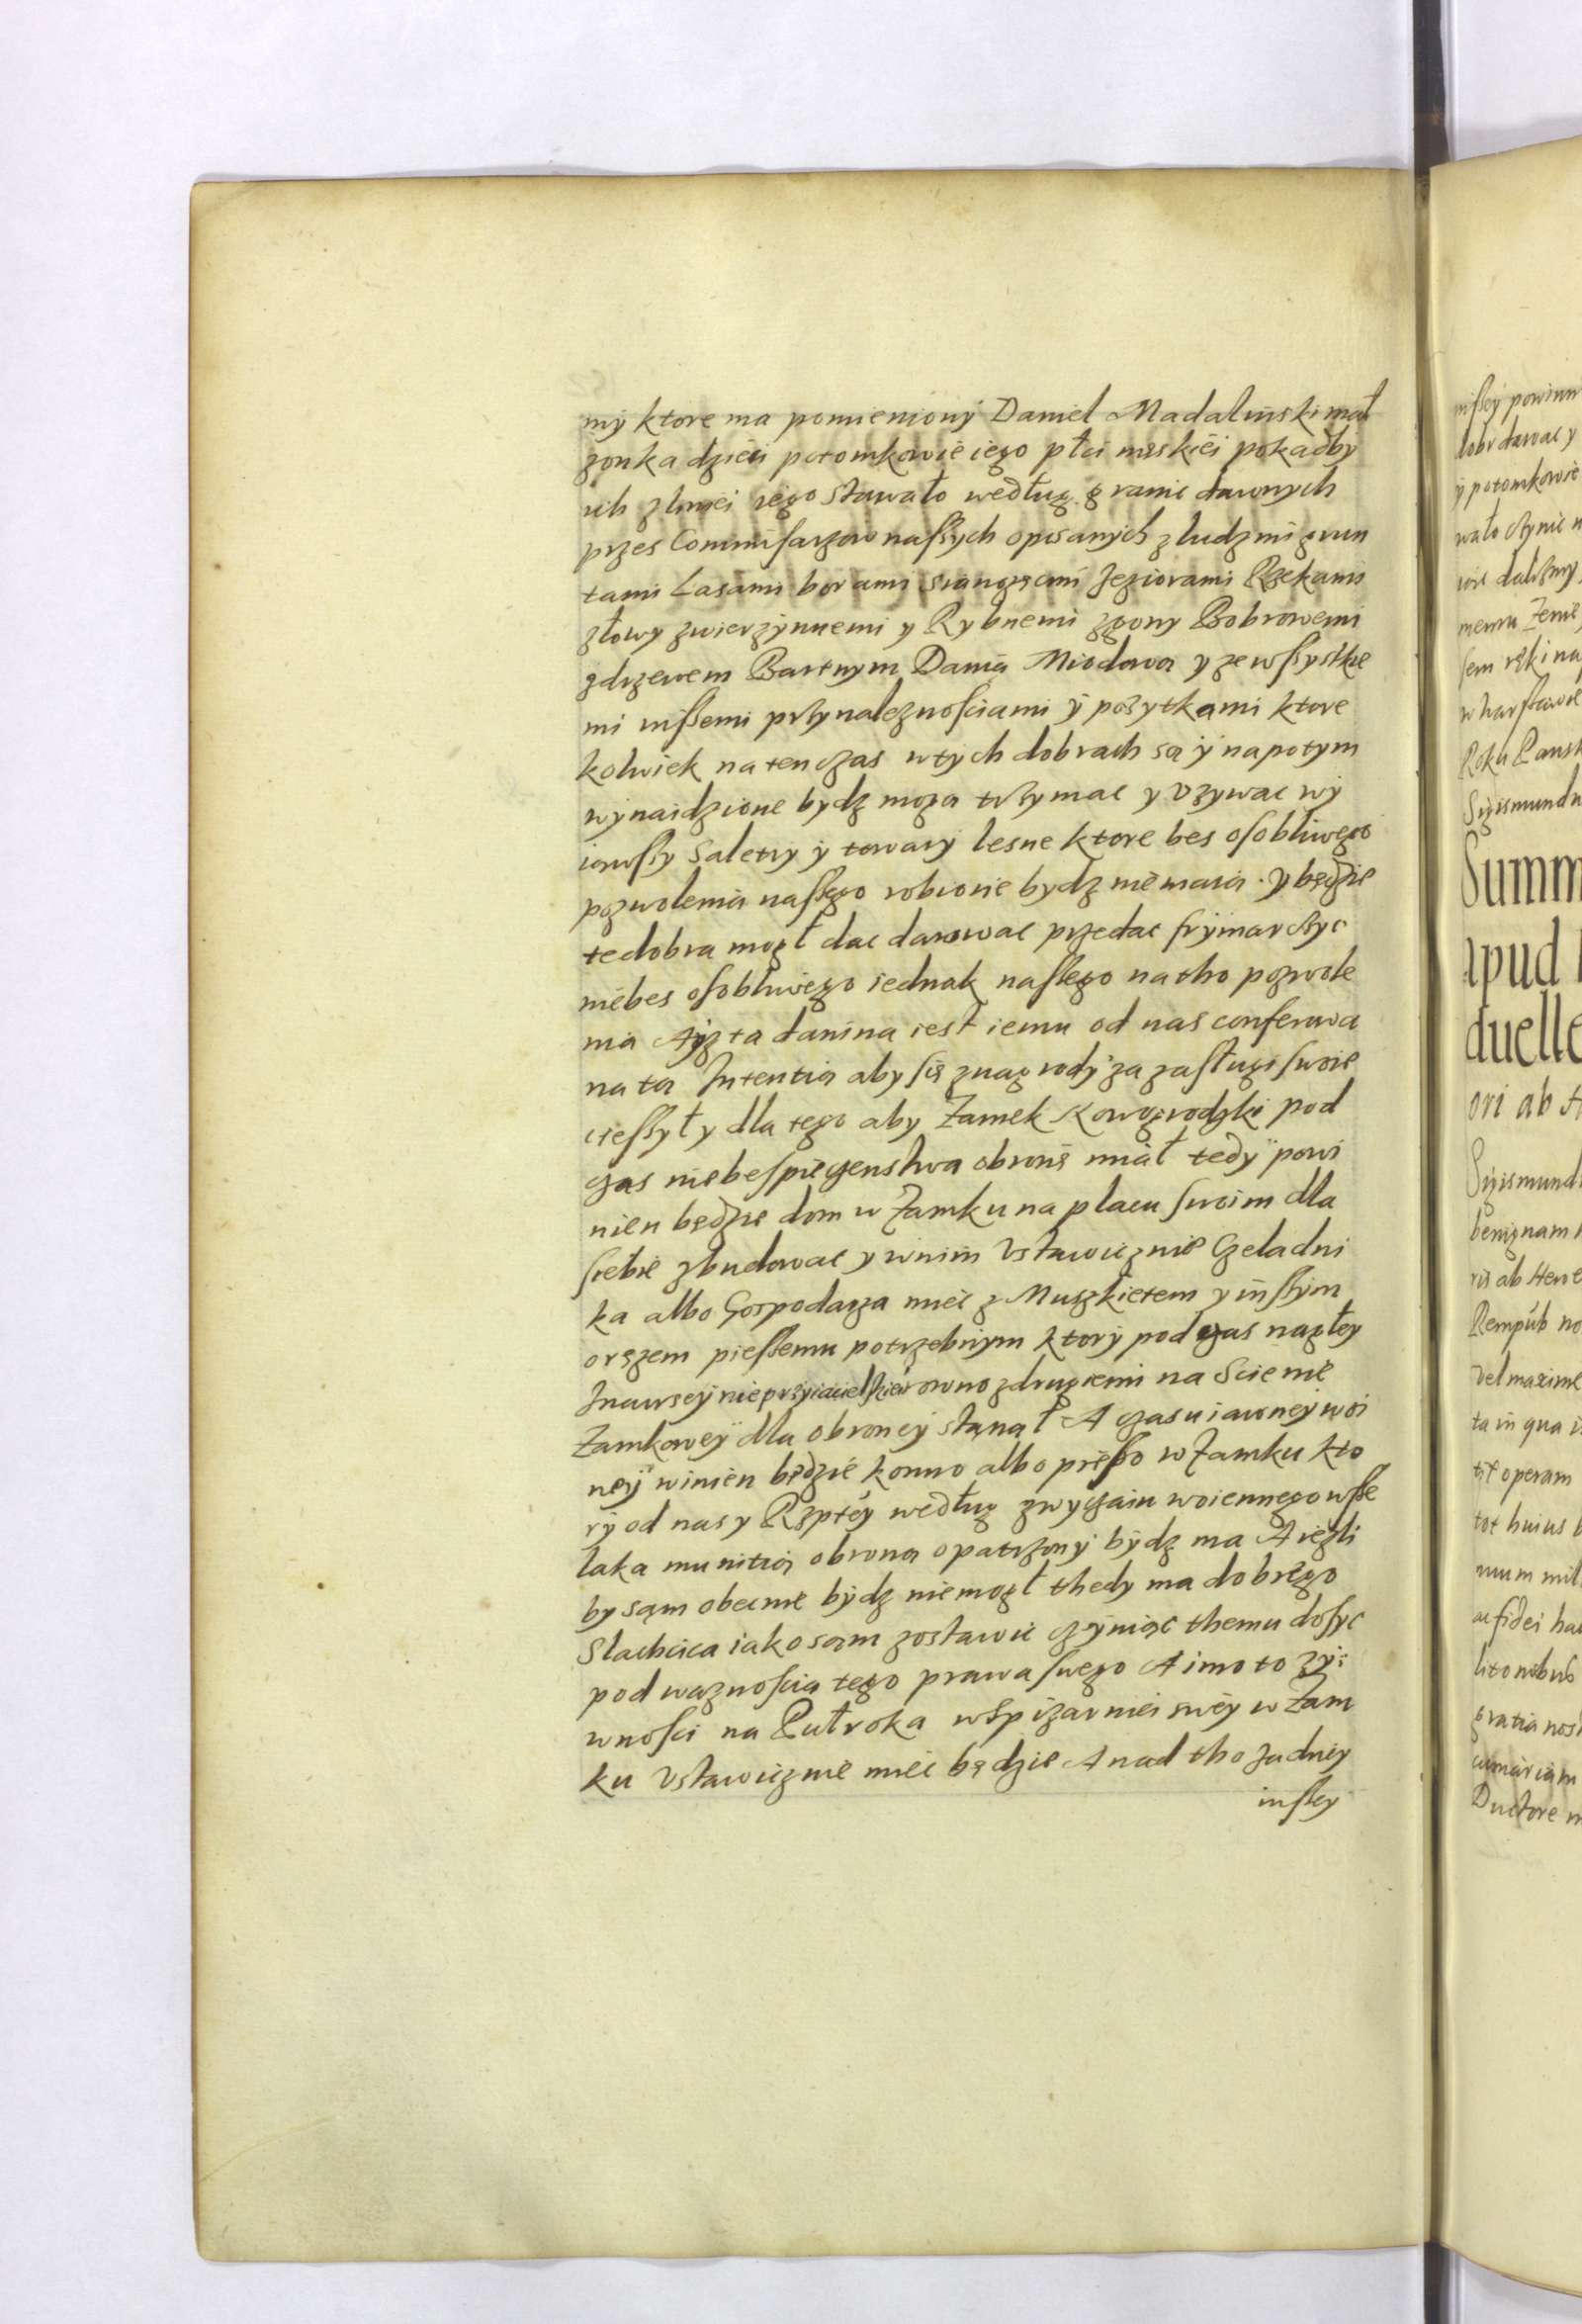 my ktore ma pomieniony Daniel Madalinski mał
zonka dzieci potomkowie iego płci męskiéi pokądby
ich z liniei iego stawało według granic dawnych
przes Commisarzow naſſych opisanych z ludzmi grun
tami Lasami borami sianozęcmi Jeziorami Rzekami
złowy zwierzynnemi y Rybnemi zgony Bobrowemi
zdrzewem Bartnym Daniā Miodową y ze wſſystkie
mi inſſemi przynaleznosciami y pozytkami ktore
kolwiek na ten czas w tych dobrach są y napotym
wynaidzione bydz mogą trzymac y vzywac wy
iąwſſy Saletry y towary lesne ktore bes osobliwego
pozwolenia naſſego robione bydz nie maią. y będzie
te dobra mogł dac darowac przedac frymarczyc
niebes osobliwego iednak naſſego na tho pozwole
nia Ayz ta danina iest iemu od nas conferowa
na tą Intentią aby się z nagrody za zasługi swoie
cieſſył y dla tego aby Zamek Nowogrodzki pod
czas niebespieczenstwa obronę miał tedy powi
nien będzie dom w Zamku na placu swoim dla
siebie zbudowac y w nim vstawicznie Czeladni
ka albo Gospodarza miec z Muszkietem y inſſym
oręzem pieſſemu potrzebnym ktory pod czas nagłey
Inaursey nieprzyiacielskiei rowno z drugiemi na Scienie
Zamkowey dla obroney stanął A czasu iawney woi
ney winien będzie konno albo pieſſo w Zamku kto
ry od nas y Rzptey według zwyczaiu woiennego wſſe
laką munitią obroną opatrzony bydz ma A iezli
by sąm obecnie bydz niemogł thedy ma dobrego
Slachcica iako sąm zostawic czyniąc themu dosyc
pod waznoscią tego prawa swego A imo to zy:
wnosci na Puł roka w Spizarniei swey w Zam
ku Vstawicznie miec będzie A nad tho zadney
inſſey